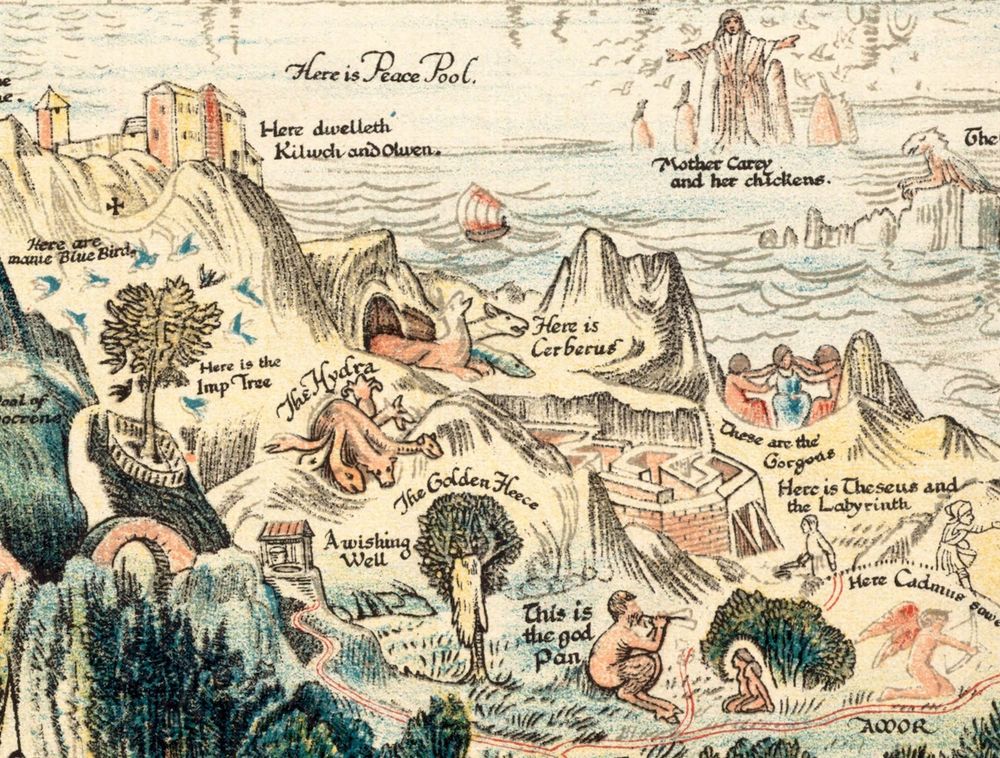 Here is Peace Pool.
Here dwelleth
Kilwch and Olwen.
Mother Carey
and her chickens.
The
Here are
manie Blue Bird.
Here is the
Imp Tree
Here is
Cerberus
The Hydra
These are the
Gorgons
The Golden Fleece
Here is Theseus and
the Labyrinth
A wishing
Well
Here Cadmus sowe
This is
the god
Pan
AMOR